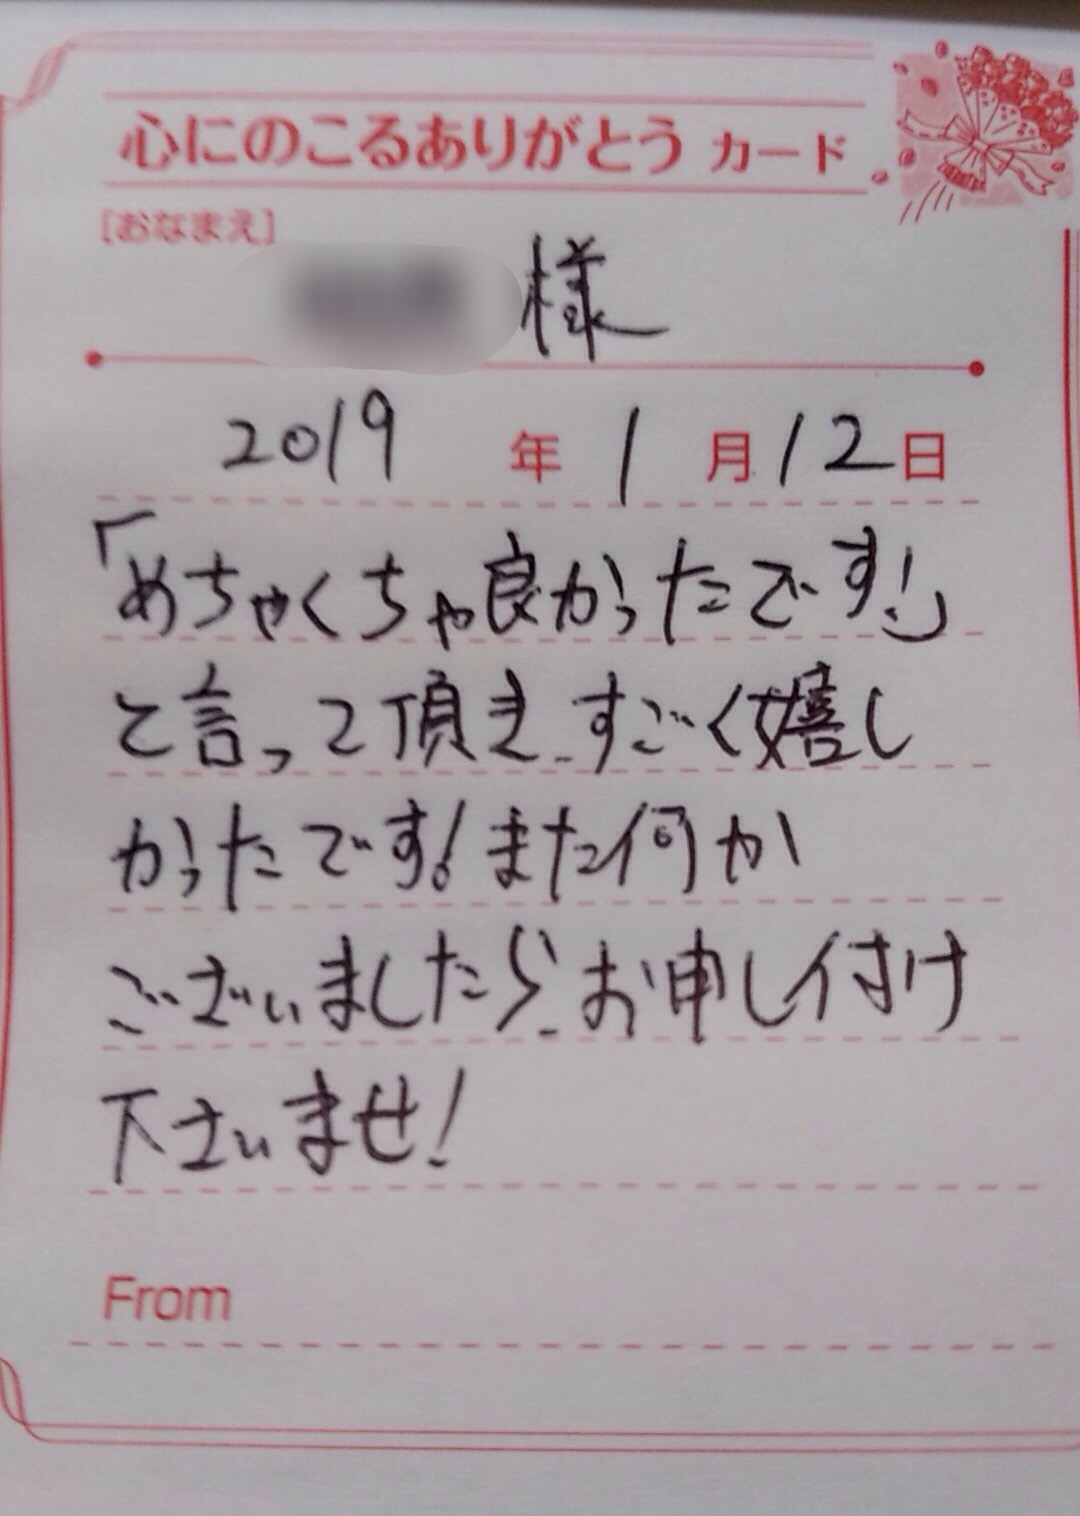 心にのこるありがとう カード
[おなまえ]
様
2019 年 1 月 12 日
「めちゃくちゃ良かったです!」
と言って頂き、すごく嬉し
かったです!また何か
ございましたら、お申し付け
下さいませ!
From